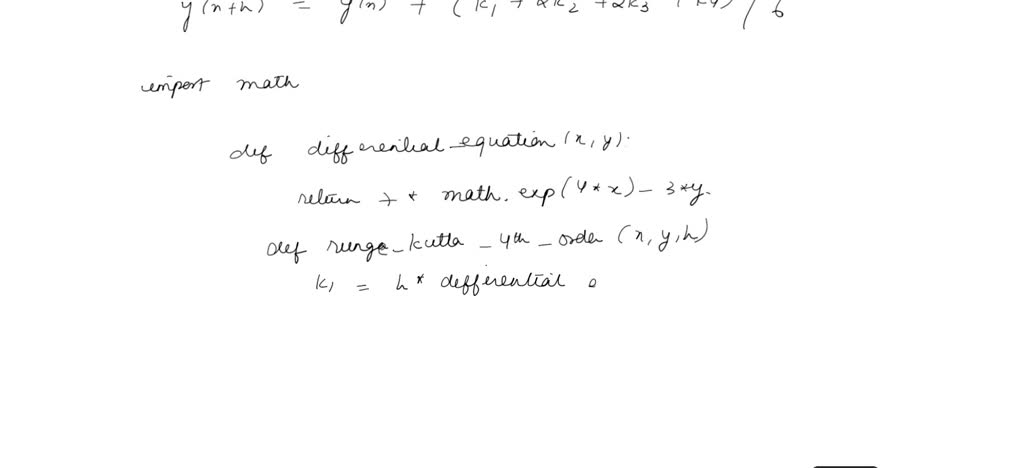 y(n+h) = y(n) + (k1 + 2k2 + 2k3 + k4) / 6
import math
def differential_equation (x, y).
return 7 * math. exp(4*x) - 3*y.
def runge_kutta _ 4th _ order (x, y, h)
k1 = h * differential e